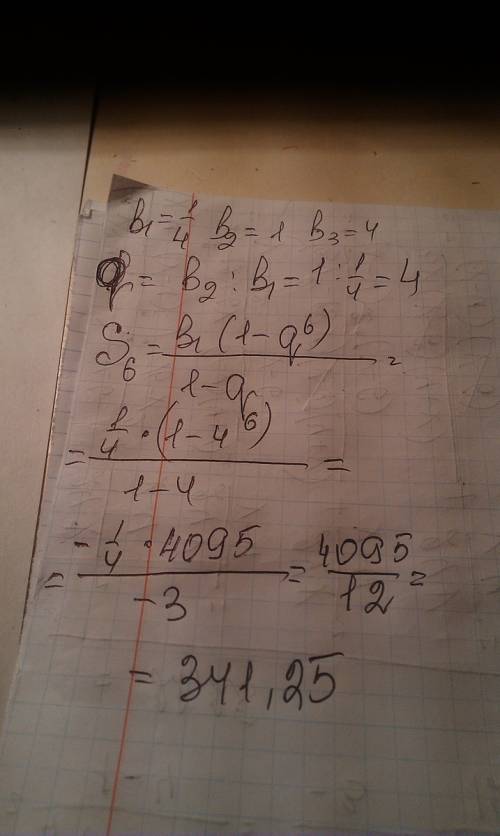 b₁ = 1/4 b₂ = 1 b₃ = 4
q = b₂ : b₁ = 1 : 1/4 = 4
S₆ = b₁ (1 - q⁶) / 1 - q =
= 1/4 · (1 - 4⁶) / 1 - 4 =
= - 1/4 · 4095 / -3 = 4095 / 12 =
= 341,25